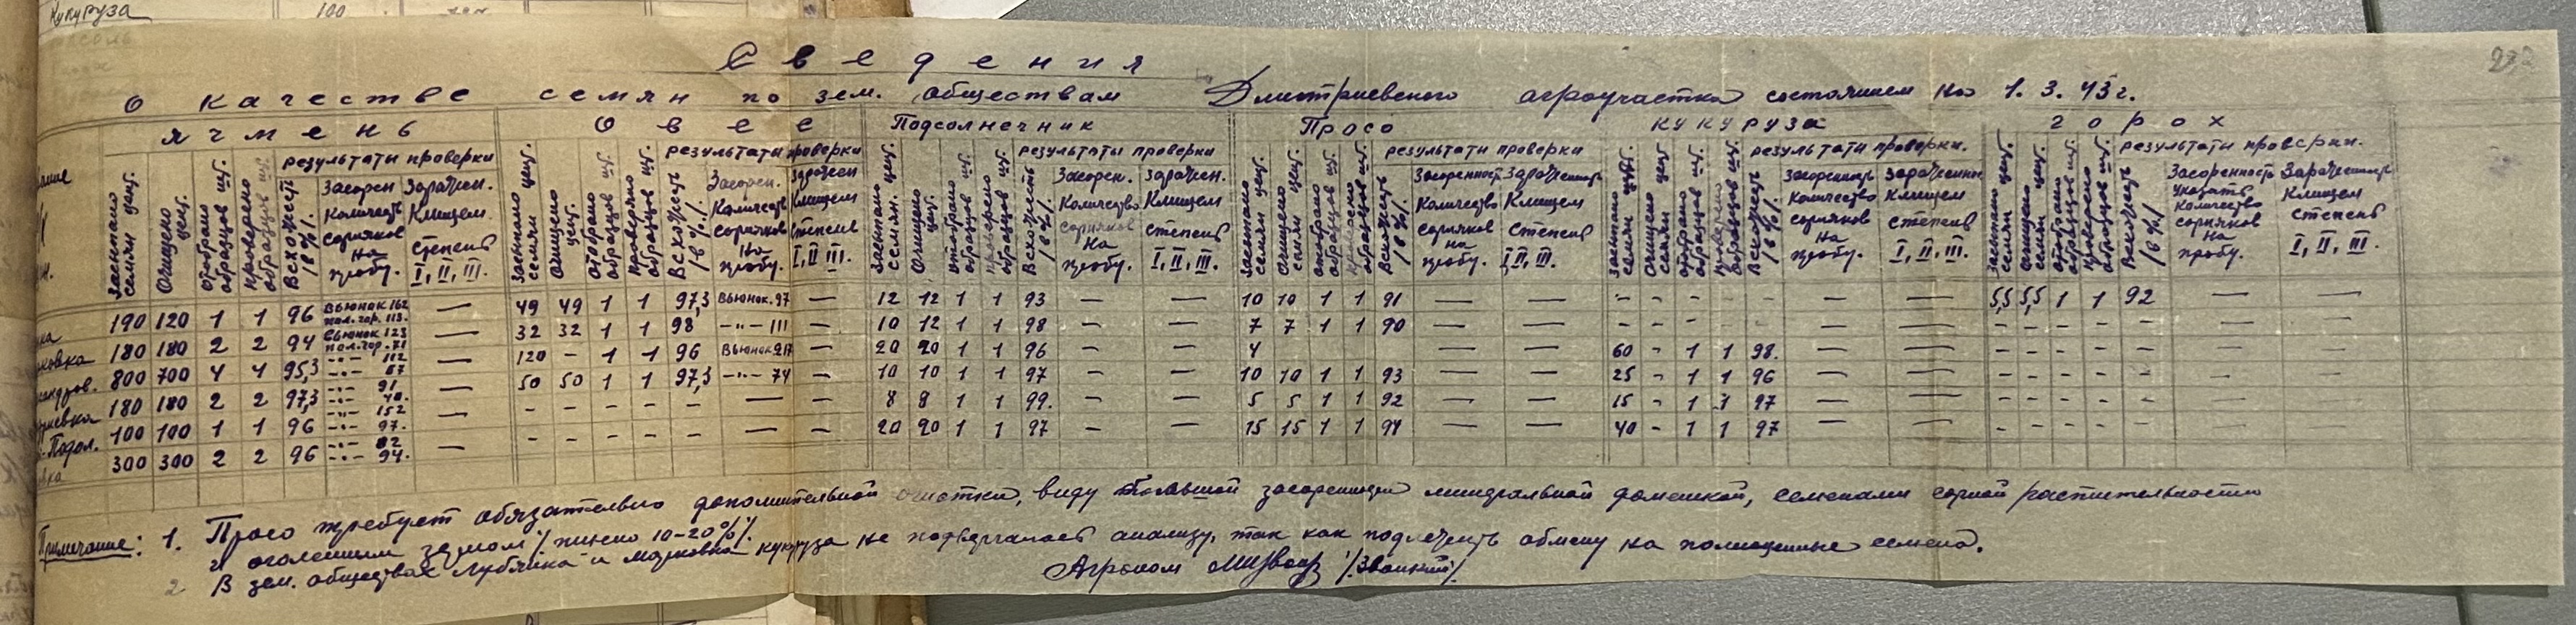 Кукуруза 100
232
Сведения
о качестве семян по зем. обществам Дмитриевского агроучастка состоянием на 1. 3. 43 г.
ячмень Овес Подсолнечник Просо кукуруза горох
результаты проверки результаты проверки результаты проверки результаты проверки результаты проверки. результаты проверки.
Засыпано семян цнт. Очищено цнт. отобрано образцов шт. проверено образцов шт. Всхожесть /в %/. Засорен. Количеств. сорняков на пробу. Заражен. Клищем степень I, II, III.
Засыпано семян цнт. Очищено цнт. отобрано образцов шт. проверено образцов шт. Всхожесть /в %/. Засорен. Количеств. сорняков на пробу. Заражен Клищем степень I, II III.
Засыпано семян. цнт. Очищено цнт. отобрано образцов шт. проверено образцов шт. Всхожесть /в %/. Засорен. Количество сорняков на пробу. Заражен. Клищем степень I, II, III.
Засыпано семян цнт. Очищено семян цнт. отобрано образцов шт. проверено образцов шт. Всхожесть /в %/. Засоренность Количество сорняков на пробу. Зараженность Клищем степень I, II, III.
Засыпано семян цнт. Очищено семян цнт отобрано образцов шт. проверено образцов шт. Всхожесть /в %/. Засоренность Количество сорняков на пробу. Зараженность Клищем степень I, II, III.
Засыпано семян цнт. Очищено семян цнт. отобрано образцов шт. проверено образцов шт. Всхожесть /в %/ Засоренность указать количество сорняков на пробу. Зараженность Клищем степень I, II, III.
190 120 1 1 96 Вьюнок.162 пол.гор. 113. — 49 49 1 1 97,3 Вьюнок.97 — 12 12 1 1 93 — — 10 10 1 1 91 — — - - - - - — — 5,5 5,5 1 1 92 — —
180 180 2 2 94 Вьюнок 123 пол.гор.71 — 32 32 1 1 98 -"- 111 — 10 12 1 1 98 — — 7 7 1 1 90 — — - - - - - — — - - - - - — —
800 700 4 4 95,3 -"- 112 -"- 67 — 120 - 1 1 96 Вьюнок 217 — 20 20 1 1 96 — — 4 — — 60 - 1 1 98. — — - - - - - — —
180 180 2 2 97,3 -"- 91 -"- 40. — 50 50 1 1 97,3 -"- 74 — 10 10 1 1 97 — — 10 10 1 1 93 — — 25 - 1 1 96 — — - - - - - — —
100 100 1 1 96 -"- 152 -"- 97. — - - - - - — — 8 8 1 1 99. — — 5 5 1 1 92 — — 15 - 1 1 97 — — - - - - - — —
300 300 2 2 96 -"- 82 -"- 94. — - - - - - — — 20 20 1 1 97 — — 15 15 1 1 94 — — 40 - 1 1 97 — — - - - - - — —
Примечание: 1. Просо требует обязательно дополнительной очистки, виду большой засоренности минеральной домешкой, семенами сорной растительности
и оголенным зерном /: пшено 10-20% /.
2 В зем. обществах Лубянка и Марковка кукуруза не подвергалась анализу, так как подлежить обмену на полноценные семена.
Агроном /Звонкий/